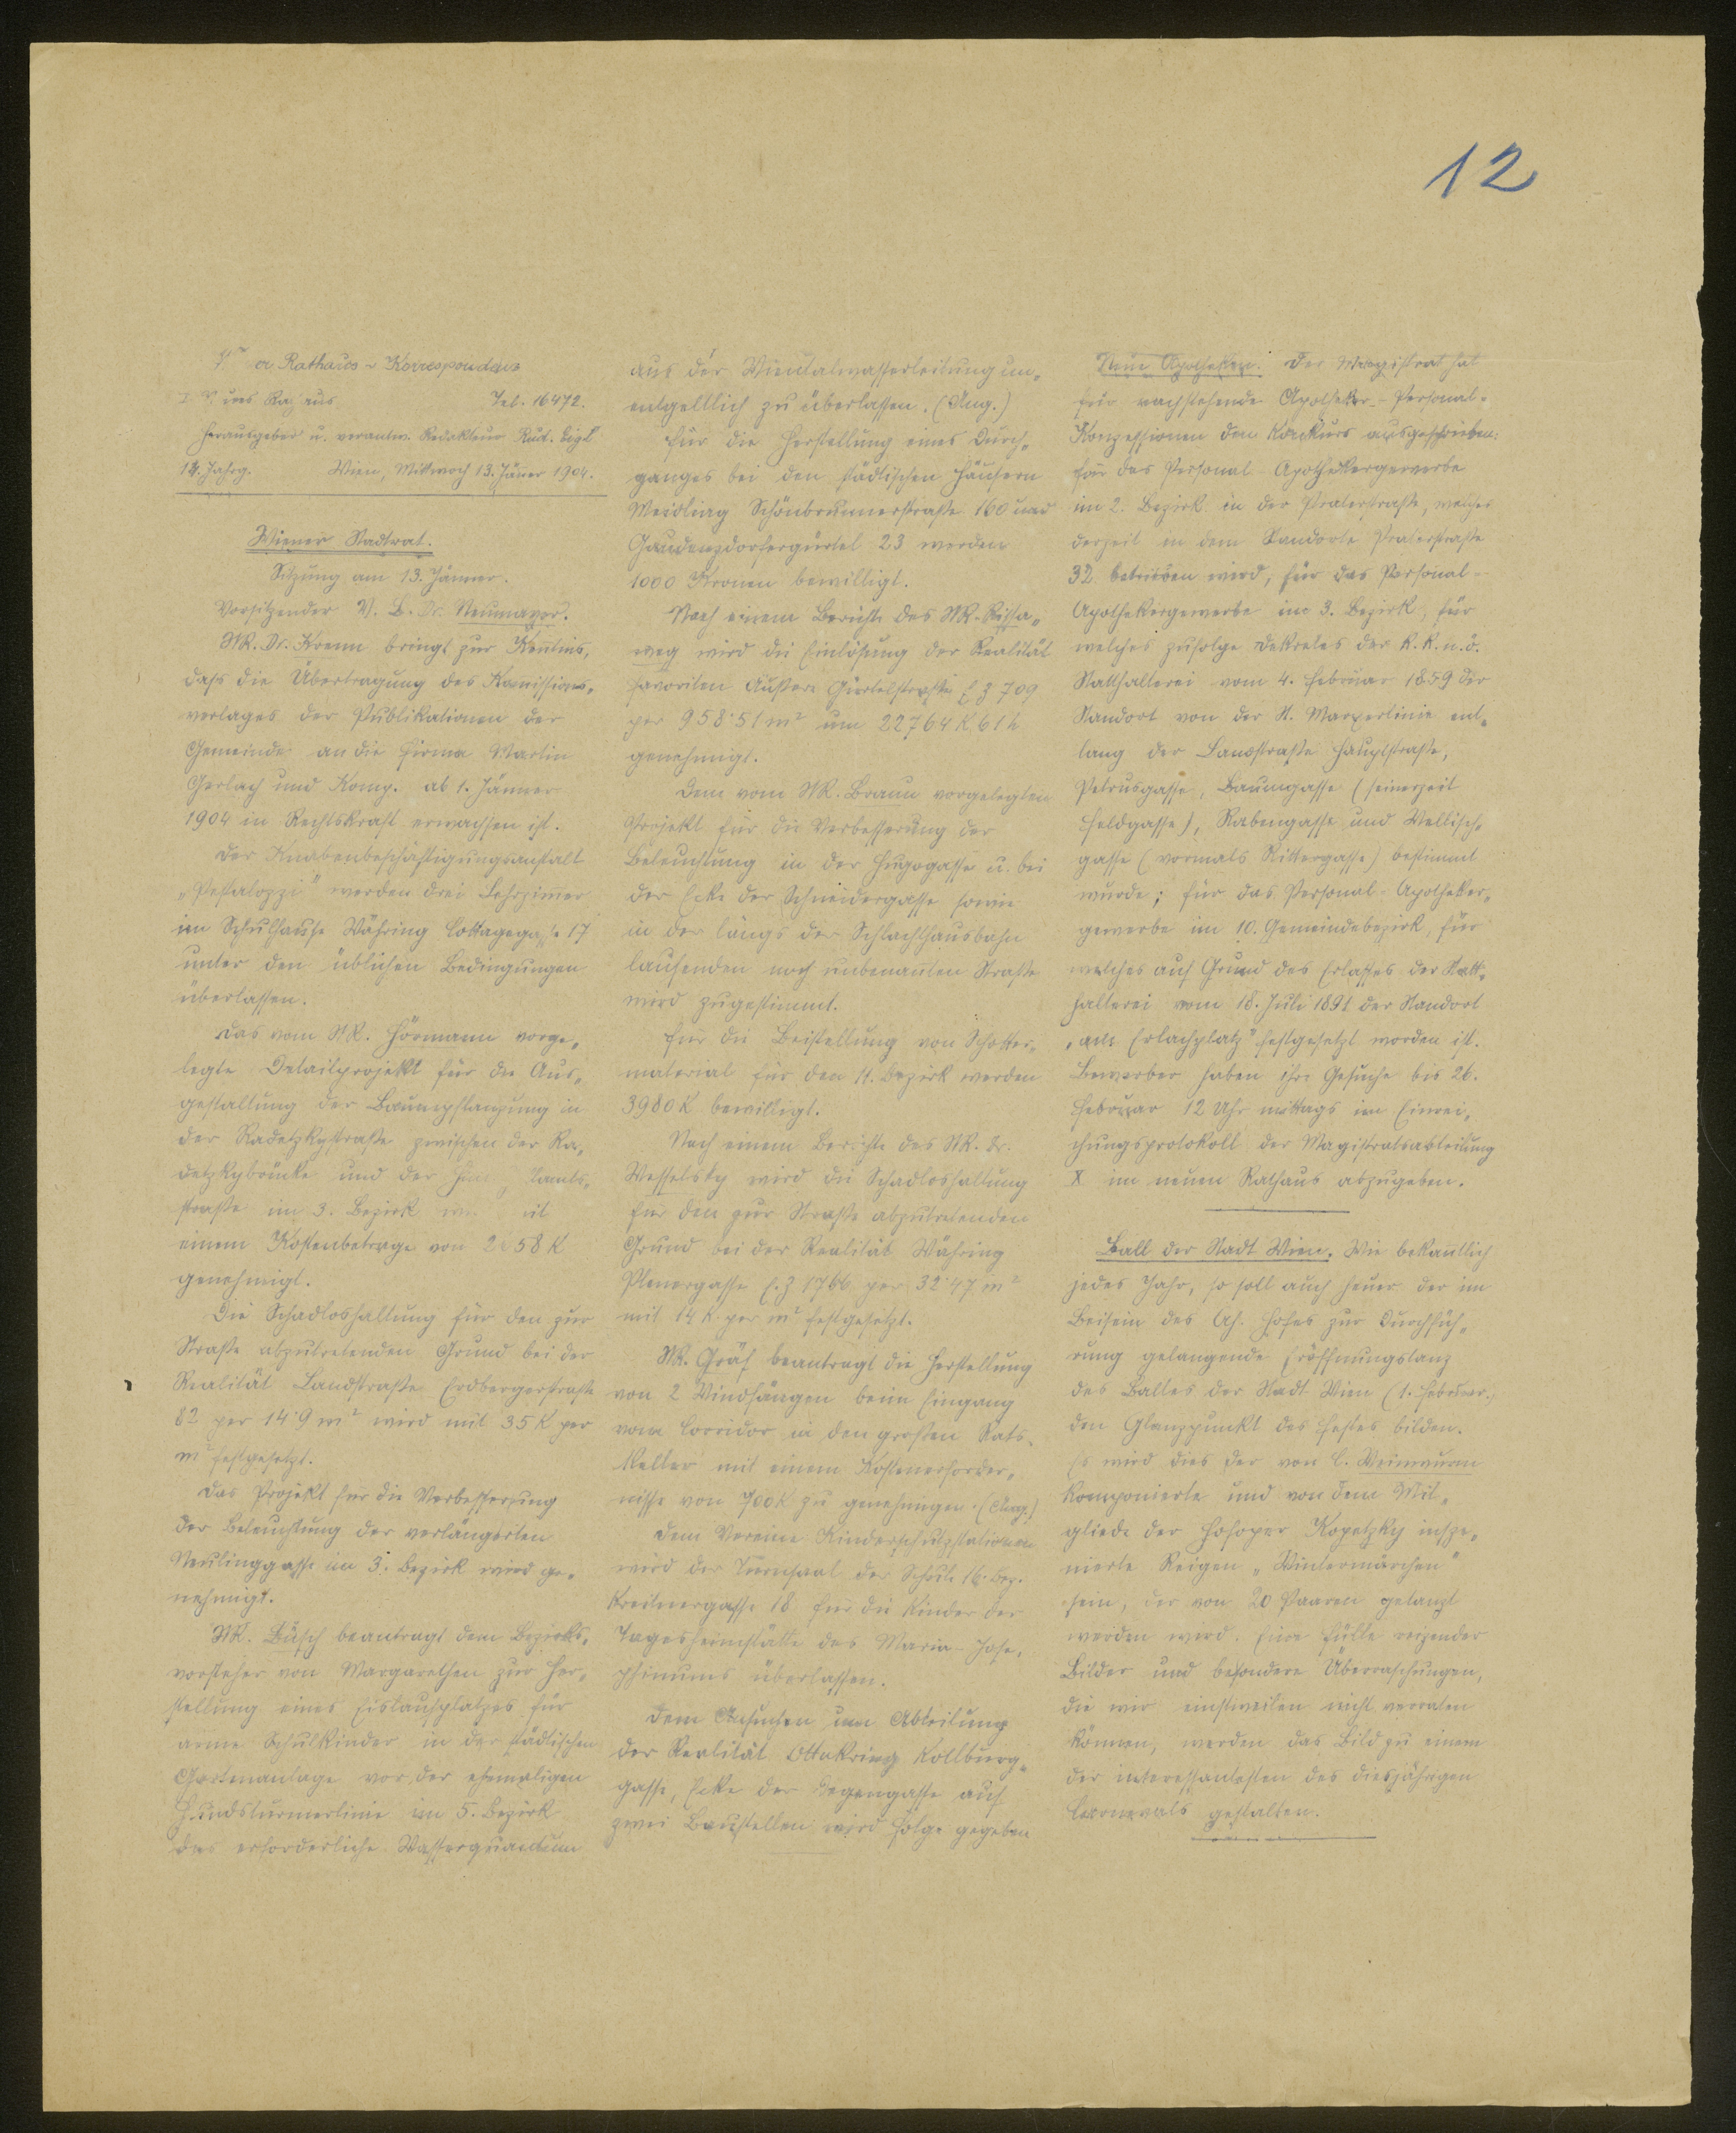 12
Rathaus-Korrespondenz
Tel. 16472.
Herausgeber u. verantw. Redakteur Rud. Eigl
14. Jahrg. Wien, Mittwoch 13. Jänner 1904.
Wiener Stadtrat.
Sitzung am 13. Jänner.
Vorsitzender V. B. Dr. Neumayer.
StR. Dr. Krenn bringt zur Kentnis,
daß die Übertragung des Komissions-
verlages der Publikationen der
Gemeinde an die Firma Martin
Gerlach und Komp. ab 1. Jänner
1904 in Rechtskraft erwachsen ist.
Der Knabenbeschäftigungsanstalt
„Pestalozzi" werden drei Lehrzimmer
im Schulhause Währing Cottagegasse 17
unter den üblichen Bedingungen
überlassen.
Das vom StR. Hörmann vorge-
legte Detailprojekt für die Aus-
gestaltung der Baumpflanzung in
der Radetzkystraße zwischen der Ra-
detzkybrücke und der
straße im 3. Bezirk
einem Kostenbetrage von
genehmigt.
Die Schadloshaltung für den zur
Straße abzutretenden Grund bei der
Realität Landstraße Erdbergerstraße
82 per 14·9 m² wird mit 35 K per
m² festgesetzt.
Das Projekt für die Verbesserung
der Beleuchtung der verlängerten
Neulinggasse im 3. Bezirk wird ge-
nehmigt.
StR. Büsch beantragt dem Bezirks-
vorsteher von Margarethen zur Her-
stellung eines Eislaufplatzes für
arme Schulkinder in der städtischen
Gartenanlage vor der ehemaligen
Hundsturmerlinie im 5. Bezirk
das erforderliche Wasserquantum
aus der Wientalwasserleitung un-
entgeltlich zu überlassen. (Ang.)
Für die Herstellung eines Durch-
ganges bei den städtischen Häusern
Meidling Schönbrunnerstraße 160 und
Gaudenzdorfergürtel 23 werden
1000 Kronen bewilligt.
Nach einem Berichte des StR. Rissa-
weg wird die Einlösung der Realität
Favoriten Äußere Gürtelstraße E Z 709
per 958·51 m² um 22764 K 61 h
genehmigt.
Dem vom StR. Braun vorgelegten
Projekt für die Verbesserung der
Beleuchtung in der Hugogasse u. bei
der Ecke der Schneidergasse sowie
in der längs der Schlachthausbahn
laufenden noch unbenanten Straße
wird zugestimmt.
Für die Beistellung von Schotter-
material für den 11. Bezirk werden
3980 K bewilligt.
Nach einem Berichte des StR. Dr.
Wesselsky wird die Schadloshaltung
für den zur Straße abzutretenden
Grund bei der Realität Währing
Plenergasse E. Z 1766 per 32·47 m²
mit 14 K per m² festgesetzt.
StR. Gräf beantragt die Herstellung
von 2 Windfängen beim Eingang
vom Corridor in den großen Rats-
keller mit einem Kostenerforder-
nisse von 700 K zu genehmigen. (Ang.)
Dem Vereine Kinderschutzstationen
wird der Turnsaal der Schule 16. Bez.
Kreitnergasse 18 für die Kinder der
Tagesheimstätte des Maria-Jose-
phinums überlassen.
Dem Ansuchen um Abteilung
der Realität Ottakring Kollburg-
gasse, Ecke der Degengasse auf
zwei Baustellen wird Folge gegeben
Neue Apotheken. Der Magistrat hat
für nachstehende Apotheker-Personal-
Konzessionen den Konkurs ausgeschrieben:
für das Personal-Apothekergewerbe
im 2. Bezirk in der Praterstraße, welches
derzeit in dem Standorte Praterstraße
32 betrieben wird, für das Personal-
Apothekergewerbe im 3. Bezirk, für
welches zufolge Dekretes der k. k. n. ö.
Statthalterei vom 4. Februar 1859 der
Standort von der St. Marxerlinie ent-
lang der Landstraße Hauptstraße,
Petrusgasse, Baumgasse (seinerzeit
Feldgasse), Rabengasse und Wällisch-
gasse (vormals Rittergasse) bestimmt
wurde; für das Personal-Apotheker-
gewerbe im 10. Gemeindebezirk, für
welches auf Grund des Erlasses der Statt-
halterei vom 18. Juli 1891 der Standort
„am Erlachplatz" festgesetzt worden ist.
Bewerber haben ihre Gesuche bis 26.
Februar 12 Uhr mittags im Einrei-
chungsprotokoll der Magistratsabteilung
X im neuen Rathaus abzugeben.
Ball der Stadt Wien. Wie bekantlich
jedes Jahr, so soll auch heuer der im
Beisein des Ah. Hofes zur Durchfüh-
rung gelangende Eröffnungstanz
des Balles der Stadt Wien (1. Februar)
den Glanzpunkt des Festes bilden.
Es wird dies der von C. Weinwurm
komponierte und von dem Mit-
gliede der Hofoper Kopetzky insze-
nierte Reigen „Wintermärchen"
sein, der von 20 Paaren getanzt
werden wird. Eine Fülle reizender
Bilder und besondere Überraschungen,
die wir einstweilen nicht verraten
können, werden das Bild zu einem
der interessantesten des diesjährigen
Carnevals gestalten.